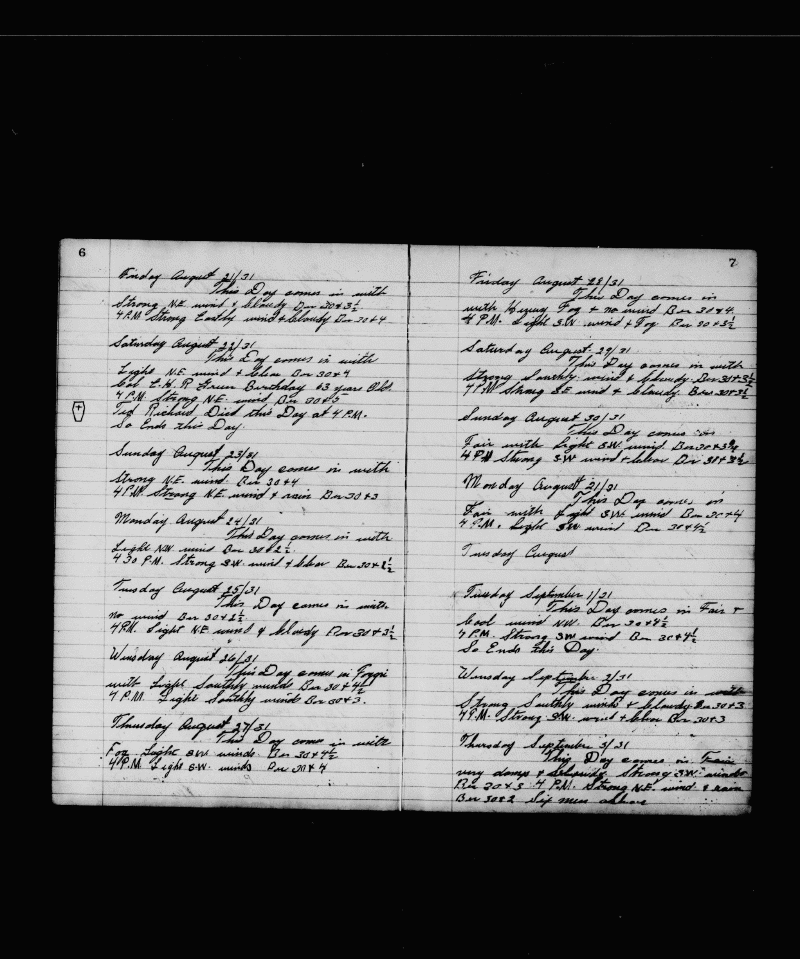 6
Friday August 21/31
This Day comes in with
Strong N.E. wind & Cloudy Bar 30 & 3½
4 P.M. Strong Eastly wind & Cloudy Bar 30 & 4
Saturday August 22/31
This Day comes in with
Light N.E. wind & Clear Bar 30 & 4
L. H. R. Green Birthday 63 years Old.
4 P.M. Strong N.E. wind Bar 30 & 3
Ted Richard Died this Day at 4 P.M.
So Ends this Day.
Sunday August 23/31
This Day comes in with
Strong N.E. wind Bar 30 & 4
4 P.M. Strong N.E. wind & rain Bar 30 & 3
Monday August 24/31
This Day comes in with
Light NW. wind Bar 30 & 2½
4 30 P.M. Strong SW. wind & Clear Bar 30 & 1½
Tuesday August 25/31
This Day comes in with
no wind Bar 30 & 2½
4 P.M. Light N.E. wind & Cloudy Bar 30 & 3½
Wensday August 26/31
This Day comes in Foggi
with Light Southly winds Bar 30 & 4½
4 P.M. Light Southly winds Bar 30 & 3.
Thursday August 27/31
This Day comes in with
Fog Light S.W. winds. Bar 30 & 4½
4 P.M. Light S.W. winds Bar 30 & 4
7
Friday August 28/31
This Day comes in
with Hevey Fog & no wind Bar 30 & 4.
4 P.M. Light S.W. wind & Fog Bar 30 & 3½
Saturday August 29/31
This Day comes in with
Strong Southly wind & Cloudy Bar 30 & 3½
4 P.M. Strong SE wind & Cloudy. Bar 30 & 3½
Sunday August 30/31
This Day comes in
Fair with Light S.W. wind. Bar 30 & 3½
4 P.M. Strong S.W. wind & Clear Bar 30 & 3½
Monday August 31/31
This Day comes in
Fair with Light S.W. wind Bar 30 & 4
4 P.M. Light S.W. wind Bar 30 & 4½
Tuesday August
Tuesday September 1/31
This Day comes in Fair &
Cool wind NW. Bar 30 & 4½
4 P.M. Strong SW wind Bar 30 & 4½
So Ends this Day.
Wensday September 2/31
This Day comes in with
Strong Southly winds & Cloudy Bar 30 & 3
4 P.M. Strong S.W. wind & Clear Bar 30 & 3
Thursday September 3/31
This Day comes in Fair
very damp & Strong S.W. winds
Bar 30 & 3 4 P.M. Strong N.E. wind & rain
Bar 30 & 2 Six men